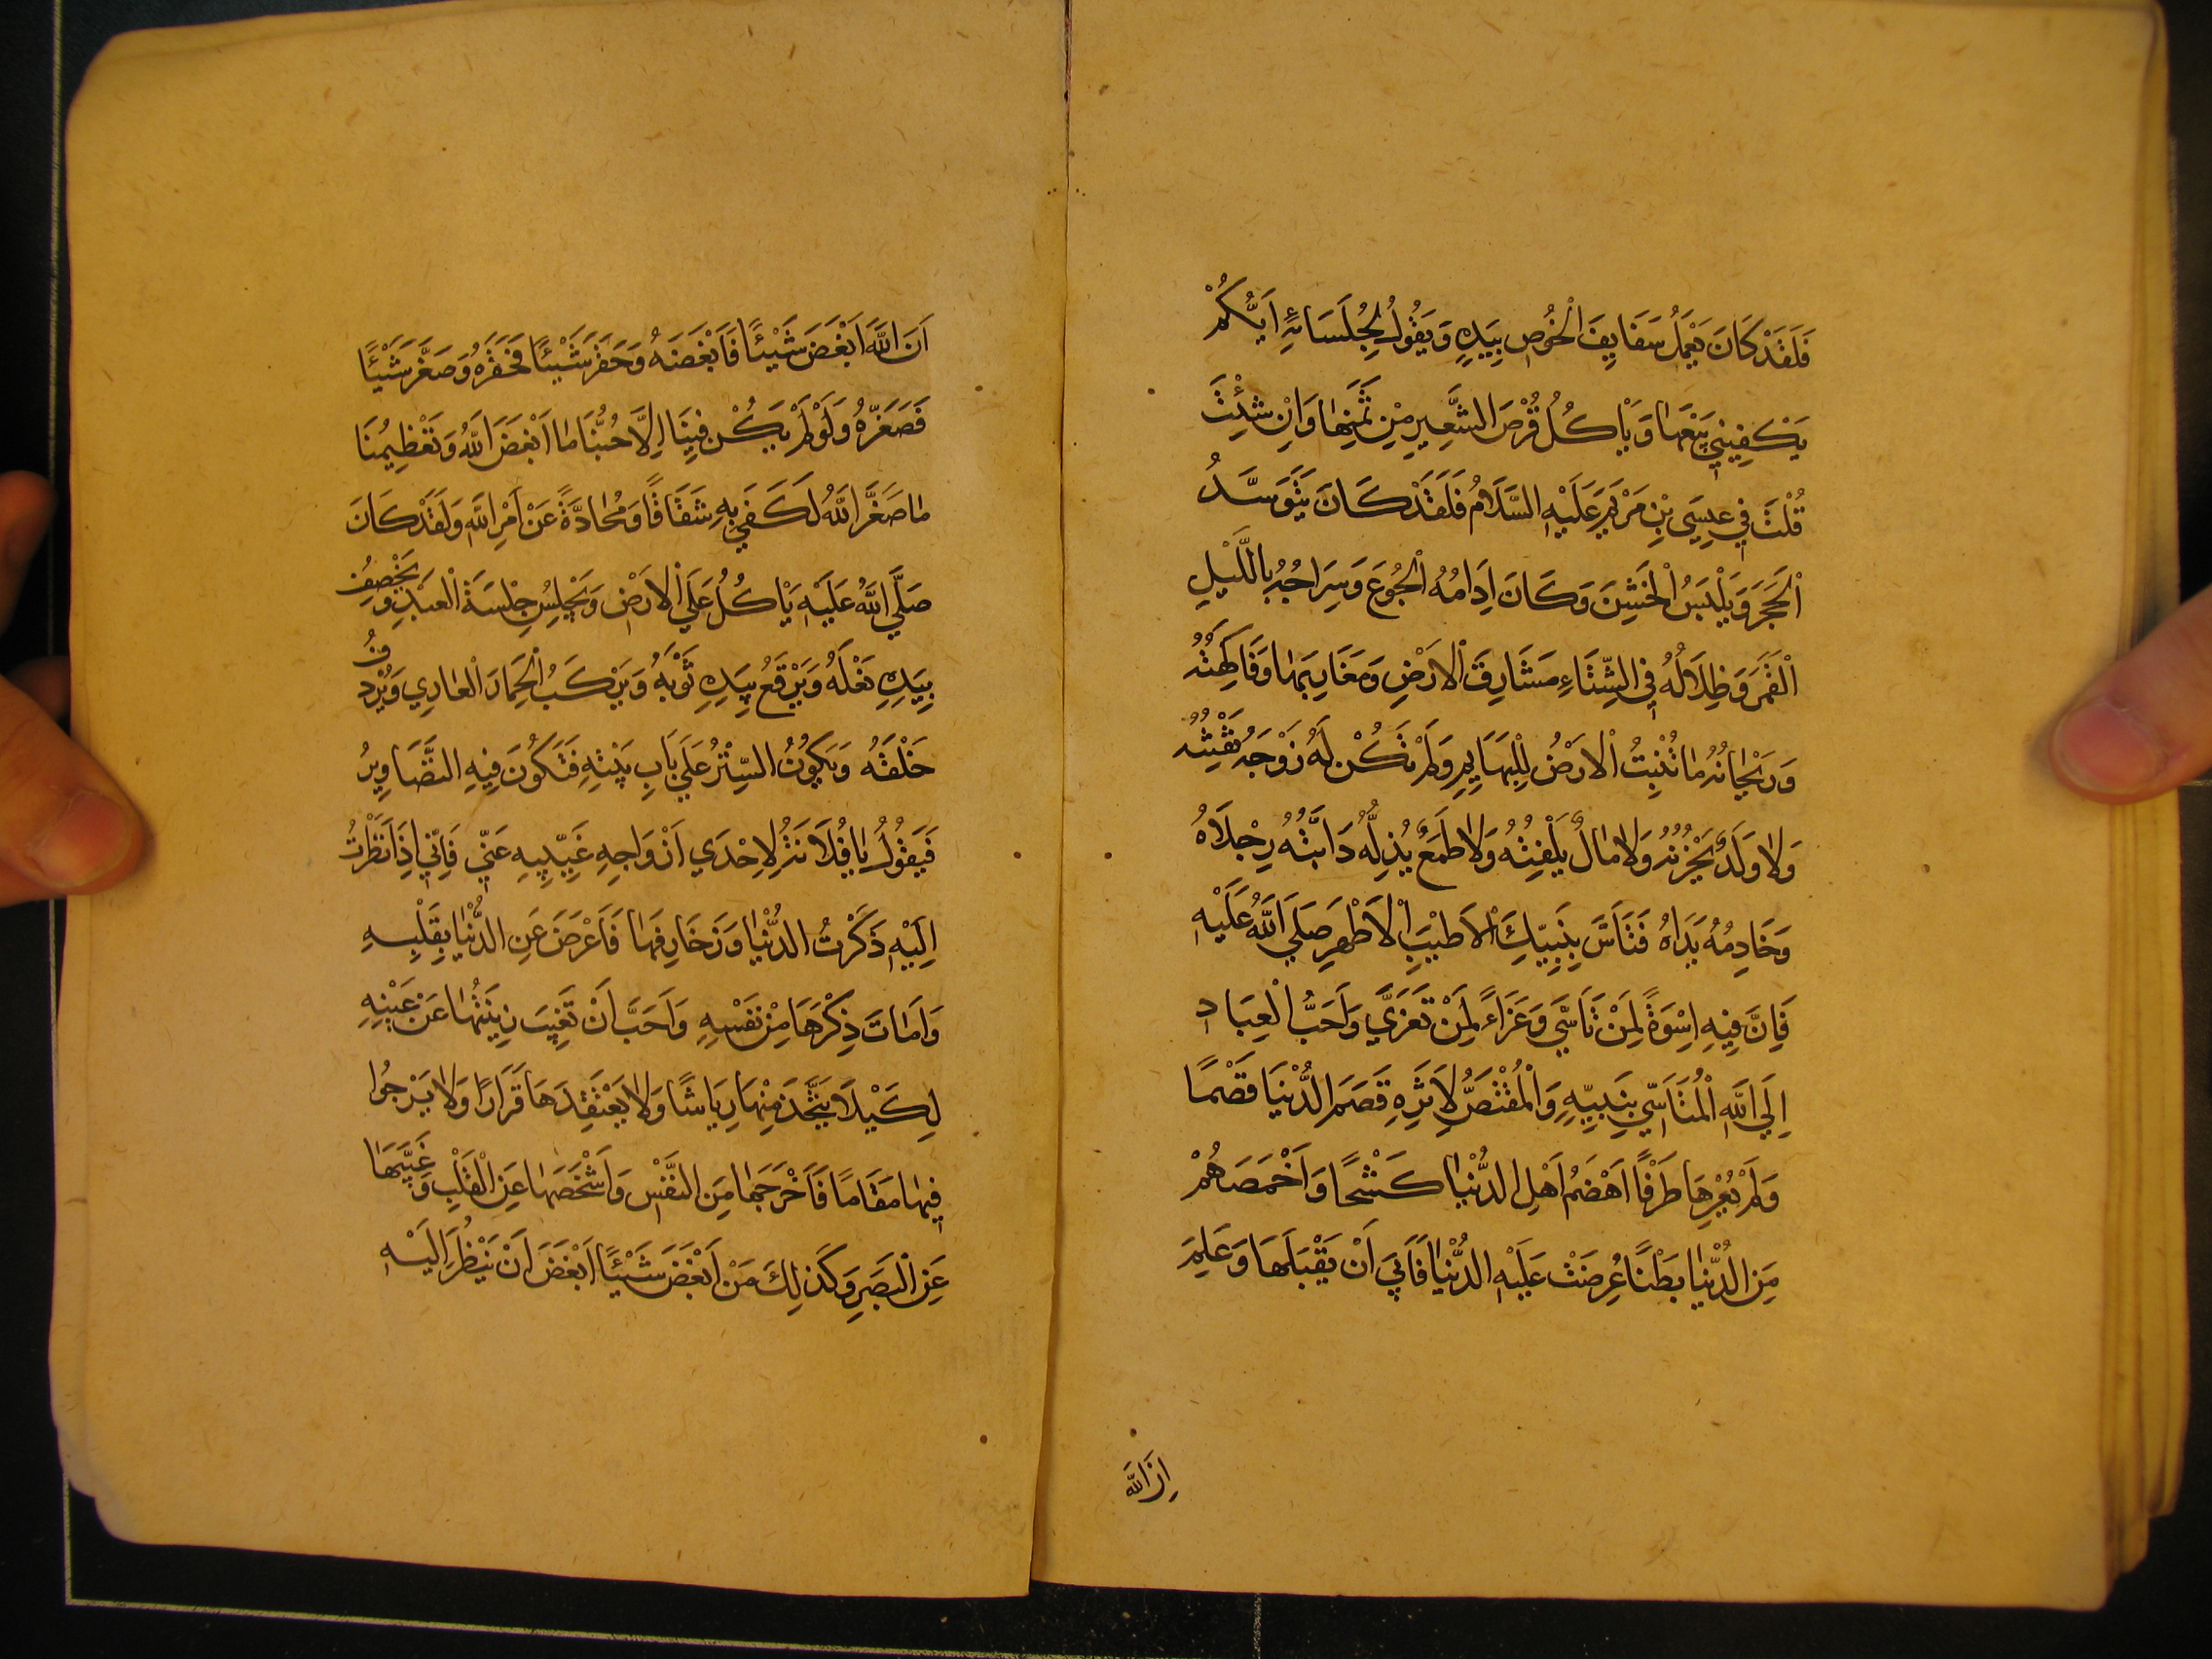 فَلَقَدْ كَانَ يَعْمَلُ سَفَايِفَ الْخُوصِ بِيَدِهِ وَيَقُولُ لِجُلَسَائِهِ اَيُّكُمْ
يَكْفِينِي بَيْعَهَا وَيَاْكُلُ قُرْصَ الشَّعِيرِ مِنْ ثَمَنِهَا وَاِنْ شِئْتَ
قُلْتَ فِي عِيسَى بْنِ مَرْيَمَ عَلَيْهِ السَّلَامُ فَلَقَدْ كَانَ يَتَوَسَّدُ
الْحَجَرَ وَيَلْبَسُ الْخَشِنَ وَكَانَ اِدَامُهُ الْجُوعَ وَسِرَاجُهُ بِاللَّيْلِ
الْقَمَرَ وَظِلَالُهُ فِي الشِّتَاءِ مَشَارِقَ الْارَضِ وَمَغَارِبَهَا وَفَاكِهَتُهُ
وَرَيْحَانُهُ مَا تُنْبِتُ الْارَضُ لِلْبَهَايِمِ وَلَمْ تَكُنْ لَهُ زَوْجَةٌ تَفْتِنُهُ
وَلَا وَلَدٌ يَحْزُنُهُ وَلَا مَالٌ يَلْفِتُهُ وَلَا طَمَعٌ يُذِلُّهُ دَابَّتُهُ رِجْلَاهُ
وَخَادِمُهُ يَدَاهُ فَتَاَسَّ بِنَبِيِّكَ الْاَطْيَبِ الْاَطْهَرِ صَلَّي اللَّهُ عَلَيْهِ
فَاِنَّ فِيهِ اِسْوَةً لِمَنْ تَاَسَّي وَعَزَاءً لِمَنْ تَعَزَّي وَاَحَبُّ الْعِبَادِ
اِلَي اللَّهِ الْمُتَاَسِّي بِنَبِيِّهِ وَالْمُقْتَصُّ لِاَثَرِهِ قَصَمَ الدُّنْيَا قَصْمًا
وَلَمْ يُعِرْهَا طَرْفًا اَهْضَمُ اَهْلِ الدُّنْيَا كَشْحًا وَاَخْمَصَهُمْ
مِنَ الدُّنْيَا بَطْنًا عُرِضَتْ عَلَيْهِ الدُّنْيَا فَاَبَي اَنْ يَقْبَلَهَا وَعَلِمَ
اِنَّ اللَّهَ
اَنَّ اللَّهَ اَبْغَضَ شَيْئًا فَاَبْغَضَهُ وَحَقَرَ شَيْئًا فَحَقَرَهُ وَصَغَّرَ شَيْئًا
فَصَغَّرَهُ وَلَوْ لَمْ يَكُنْ فِينَا اِلَّا حُبُّنَا مَا اَبْغَضَ اللَّهُ وَتَعْظِيمُنَا
مَا صَغَّرَ اللَّهُ لَكَفَي بِهِ شِقَاقًا وَمُحَادَّةً عَنْ اَمْرِ اللَّهِ وَلَقَدْ كَانَ
صَلَّي اللَّهُ عَلَيْهِ يَاْكُلُ عَلَي الْارَضِ وَيَجْلِسُ جِلْسَةَ الْعَبْدِ وَيَخْصِفُ
بِيَدِهِ نَعْلَهُ وَيَرْقَعُ بِيَدِهِ ثَوْبَهُ وَيَرْكَبُ الْحِمَارَ الْعَارِي وَيُرْدِفُ
خَلْفَهُ وَيَكُونُ السِّتْرُ عَلَي بَابِ بَيْتِهِ فَتَكُونُ فِيهِ التَّصَاوِيرُ
فَيَقُولُ يَا فُلَانَةُ لِاِحْدَي اَزْوَاجِهِ غَيِّبِيهِ عَنِّي فَاِنِّي اِذَا نَظَرْتُ
اِلَيْهِ ذَكَرْتُ الدُّنْيَا وَزَخَارِفَهَا فَاَعْرَضَ عَنِ الدُّنْيَا بِقَلْبِهِ
وَاَمَاتَ ذِكْرَهَا مِنْ نَفْسِهِ وَاَحَبَّ اَنْ تَغِيبَ زِينَتُهَا عَنْ عَيْنِهِ
لِكَيْلَا يَتَّخِذَ مِنْهَا رِيَاشًا وَلَا يَعْتَقِدَهَا قَرَارًا وَلَا يَرْجُوا
فِيهَا مَقَامًا فَاَخْرَجَهَا مِنَ النَّفْسِ وَاَشْخَصَهَا عَنِ الْقَلْبِ وَغَيَّبَهَا
عَنِ الْبَصَرِ وَكَذٰلِكَ مَنْ اَبْغَضَ شَيْئًا اَبْغَضَ اَنْ يَنْظُرَ اِلَيْهِ